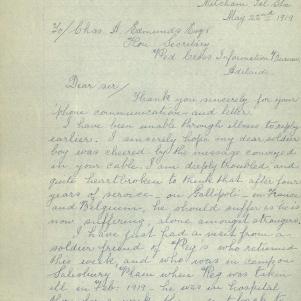 Mitcham Tel. Stn
May 22nd 1919
To/ Chas. A. Edmunds Esq
Hon. Secretary
Red Cross Information Bureau
Adelaide
Dear sir/
Thank you sincerely for your
'phone communication and letter.
I have been unable through illness to reply
earlier. I sincerely hope my dear soldier
boy was cheered by the message conveyed
in your cable. I am deeply troubled and
quite heartbroken to think that after four
years of service - on Gallipoli - in France
and Belgium - he should suffer as he is
now suffering, alone amongst strangers.
I have just had a visit from a
soldier friend of Reg's who returned
this week, and who was in camp on
Salisbury Plain when Reg was taken
ill in Feb. 1919 - he was in hospital
back to